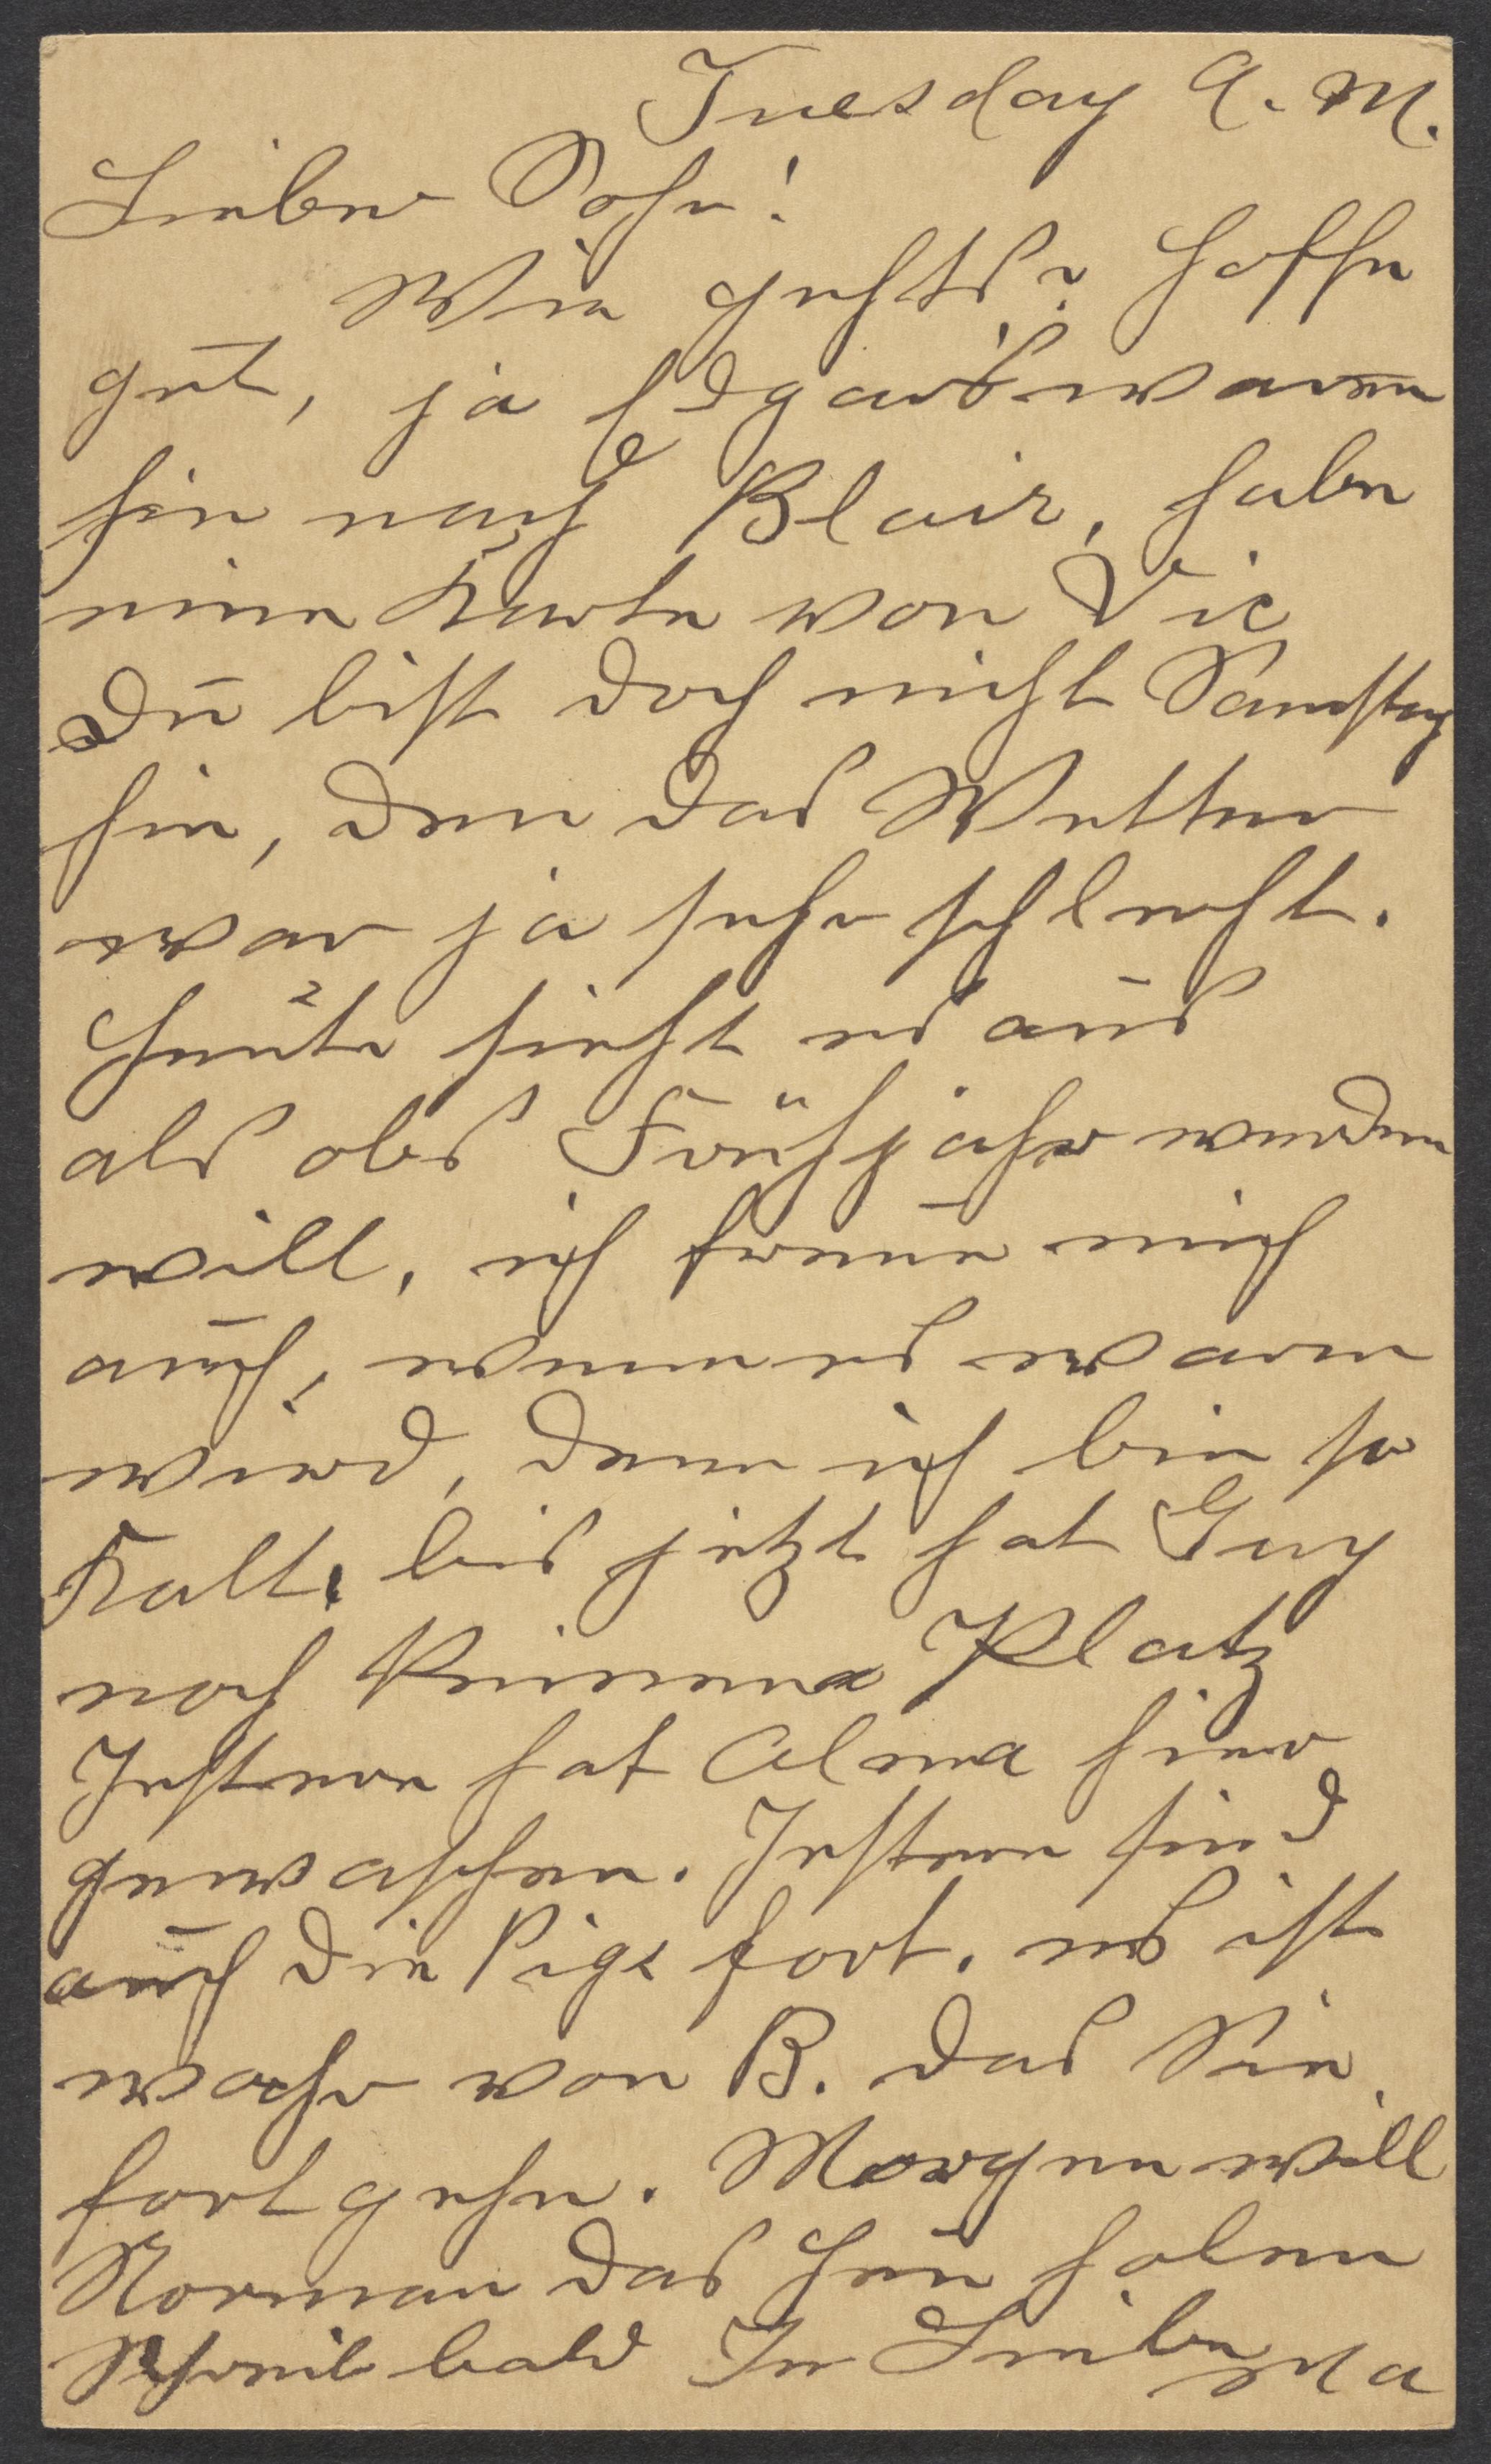 Tuesday A. M.
Lieber Sohn!
Wie gehts? hoffe
gut, ja Edgars waren
hin nach Blair, habe
eine Karte von Vic
Du bist doch nicht Samstag
hin, den das Wetter
war ja sehr schlecht.
Heute sieht es aus
als obs Frühjahr werden
will, ich freue mich
auch, wenn es warm
wird, denn ich bin so
Kalt, bis jetzt hat Guy
noch keinen Platz
Gestern hat Alma hier
gewaschen. Gestern sind
auch die Pigs fort. es ist
wahr von B. das Sie
fort gehn. Morgen will
Norman das Heu holen
Schreib bald In Liebe Ma